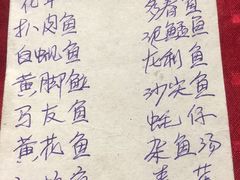 扒肉鱼
白蜆鱼
黄脚鱲
马友鱼
黄花鱼
多春鱼
泥鯭鱼
龙利鱼
沙尖鱼
蚝仔
杂鱼汤